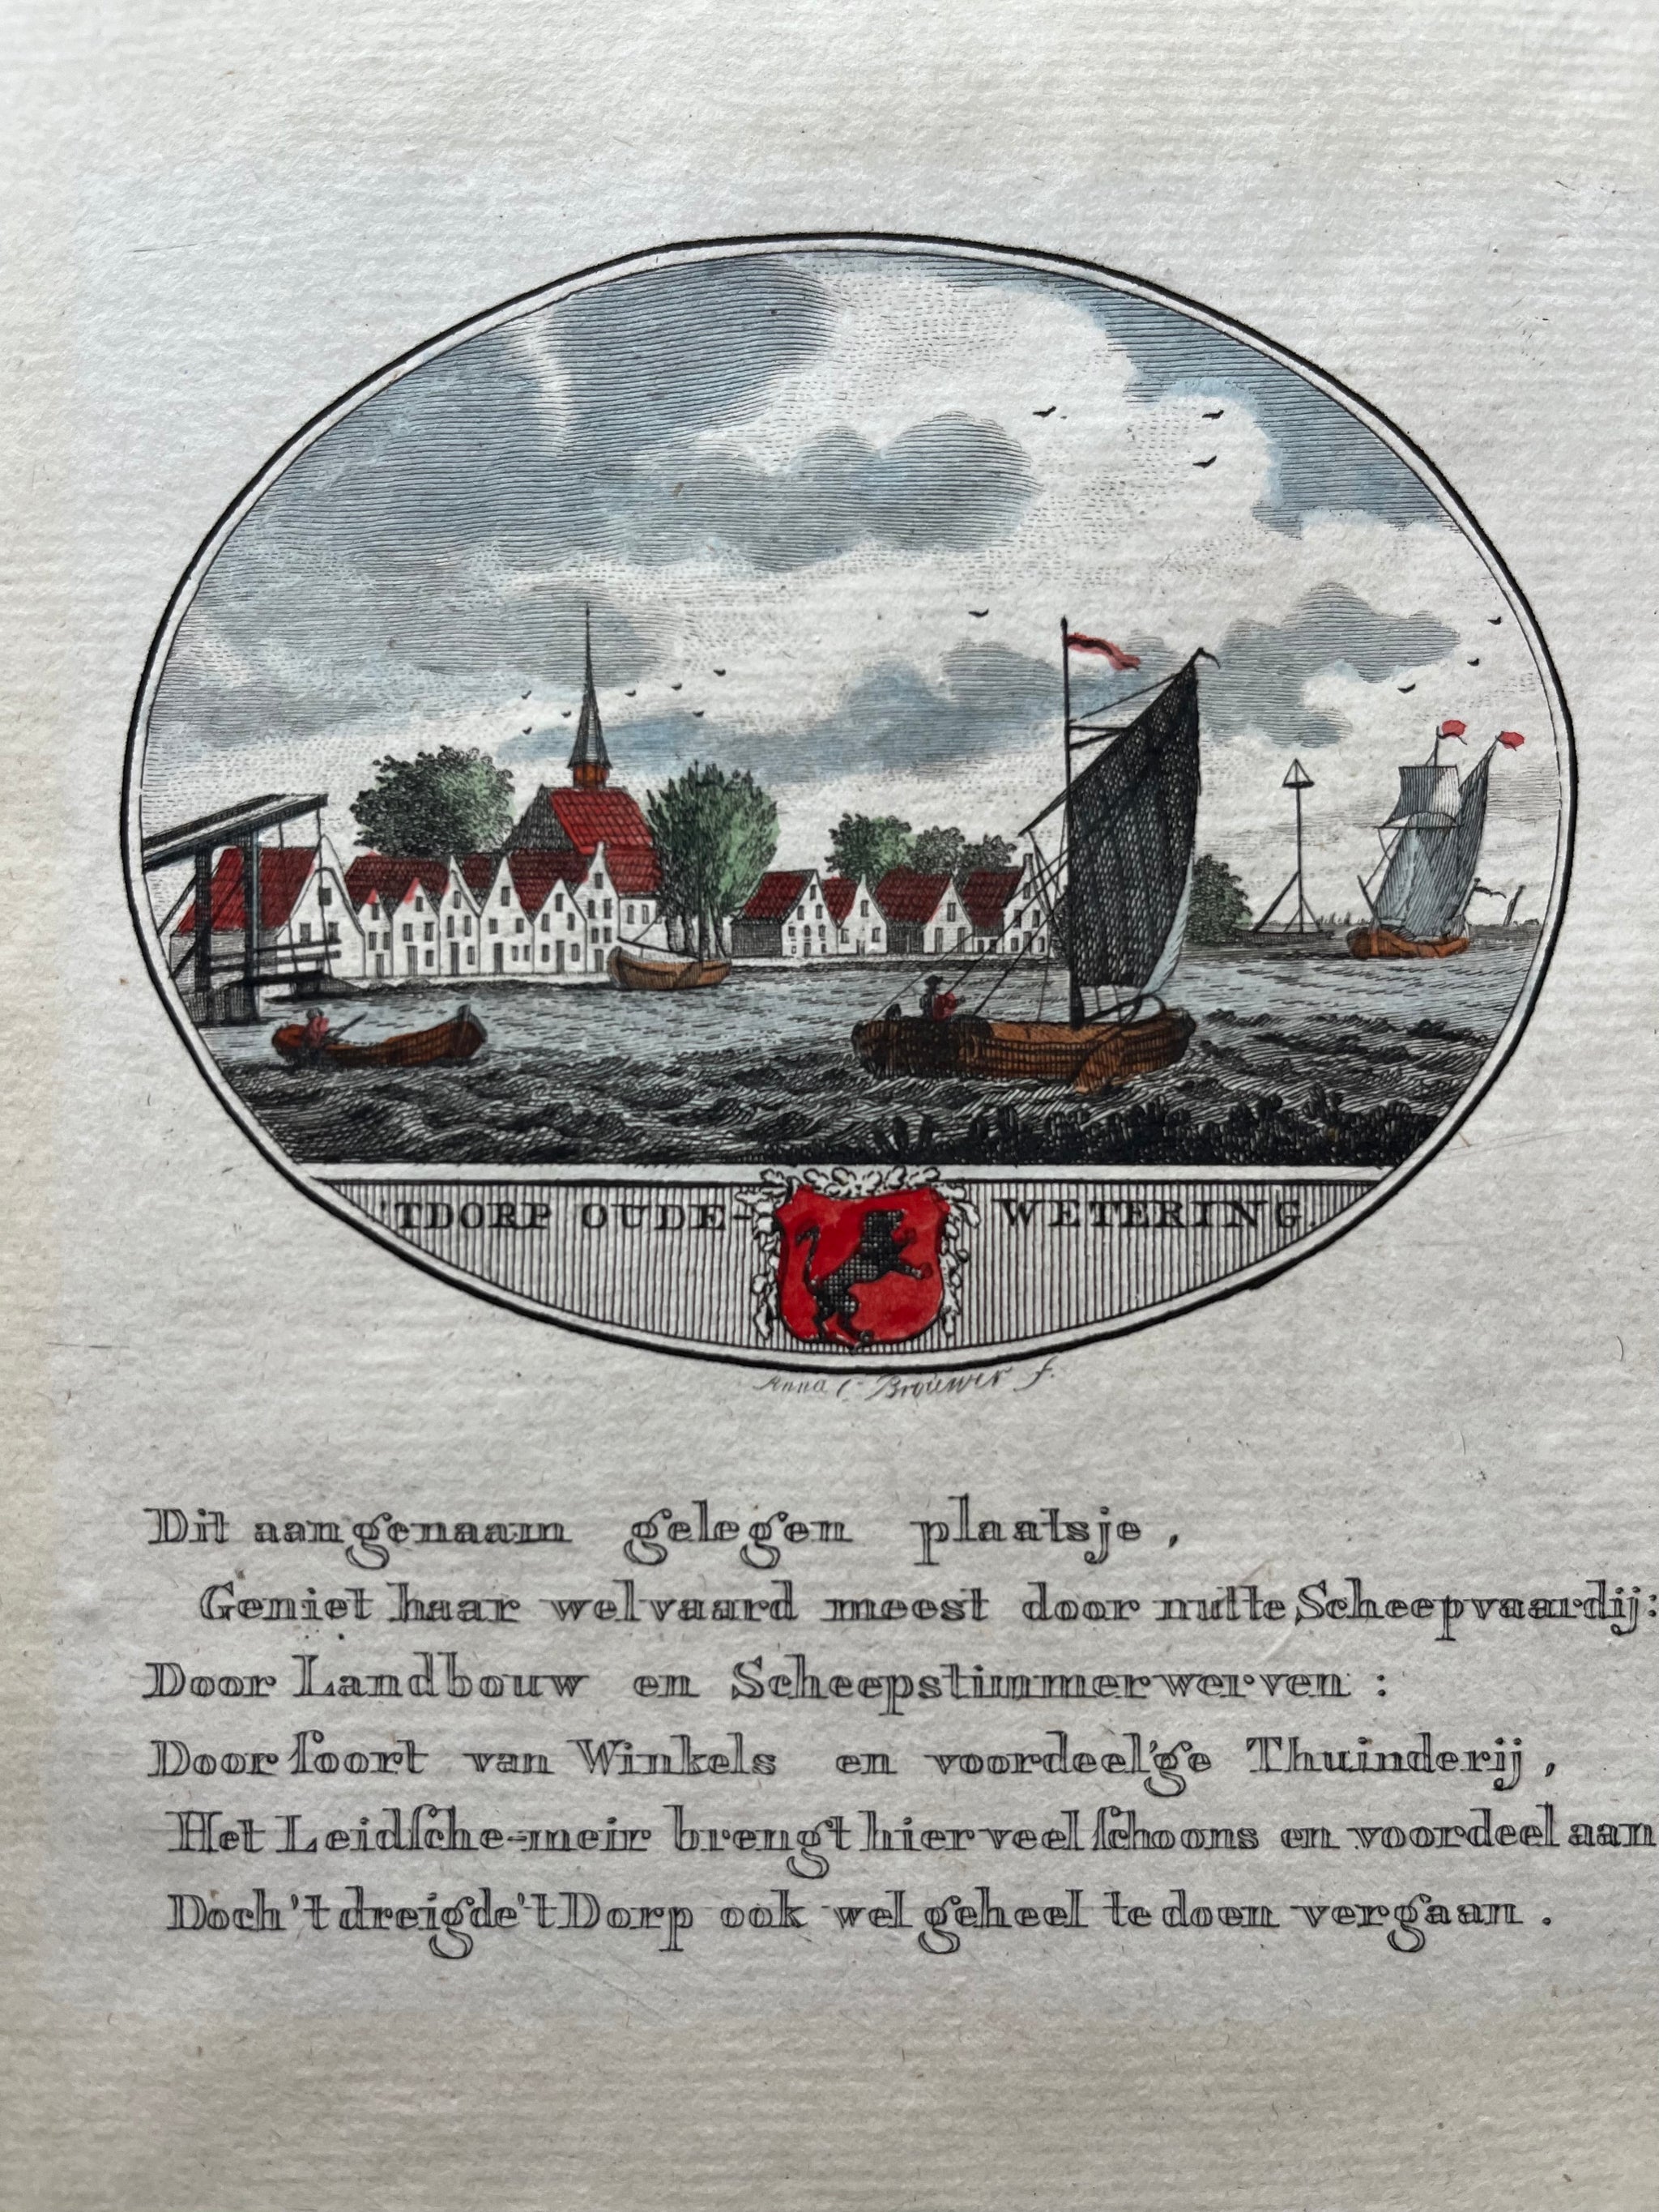 'TDORP OUDE- WETERING.
Anna C. Brouwer f.
Dit aangenaam gelegen plaatsje,
Geniet haar welvaard meest door nutte Scheepvaardij:
Door Landbouw en Scheepstimmerwerven:
Door ſoort van Winkels en voordeel'ge Thuinderij,
Het Leidſche-meir brengt hier veel ſchoons en voordeel aan
Doch 't dreigde 't Dorp ook wel geheel te doen vergaan.